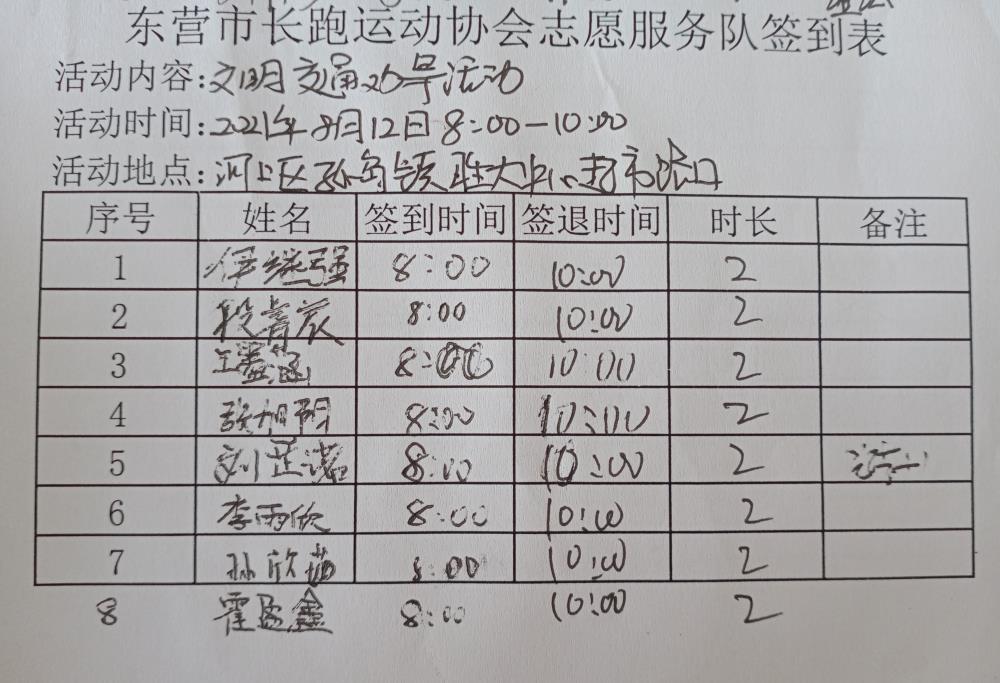 东营市长跑运动协会志愿服务队签到表
活动内容:文明交通劝导活动
活动时间:2021年8月12日8:00-10:00
活动地点:河口区孤岛镇胜大中心超市路口
序号 姓名 签到时间 签退时间 时长 备注
1 8:00 10:00 2
2 8:00 10:00 2
3 8:00 10:00 2
4 8:00 10:00 2
5 刘芷诺 8:00 10:00 2
6 李雨欣 8:00 10:00 2
7 孙欣茹 8:00 10:00 2
8 霍盈鑫 8:00 10:00 2